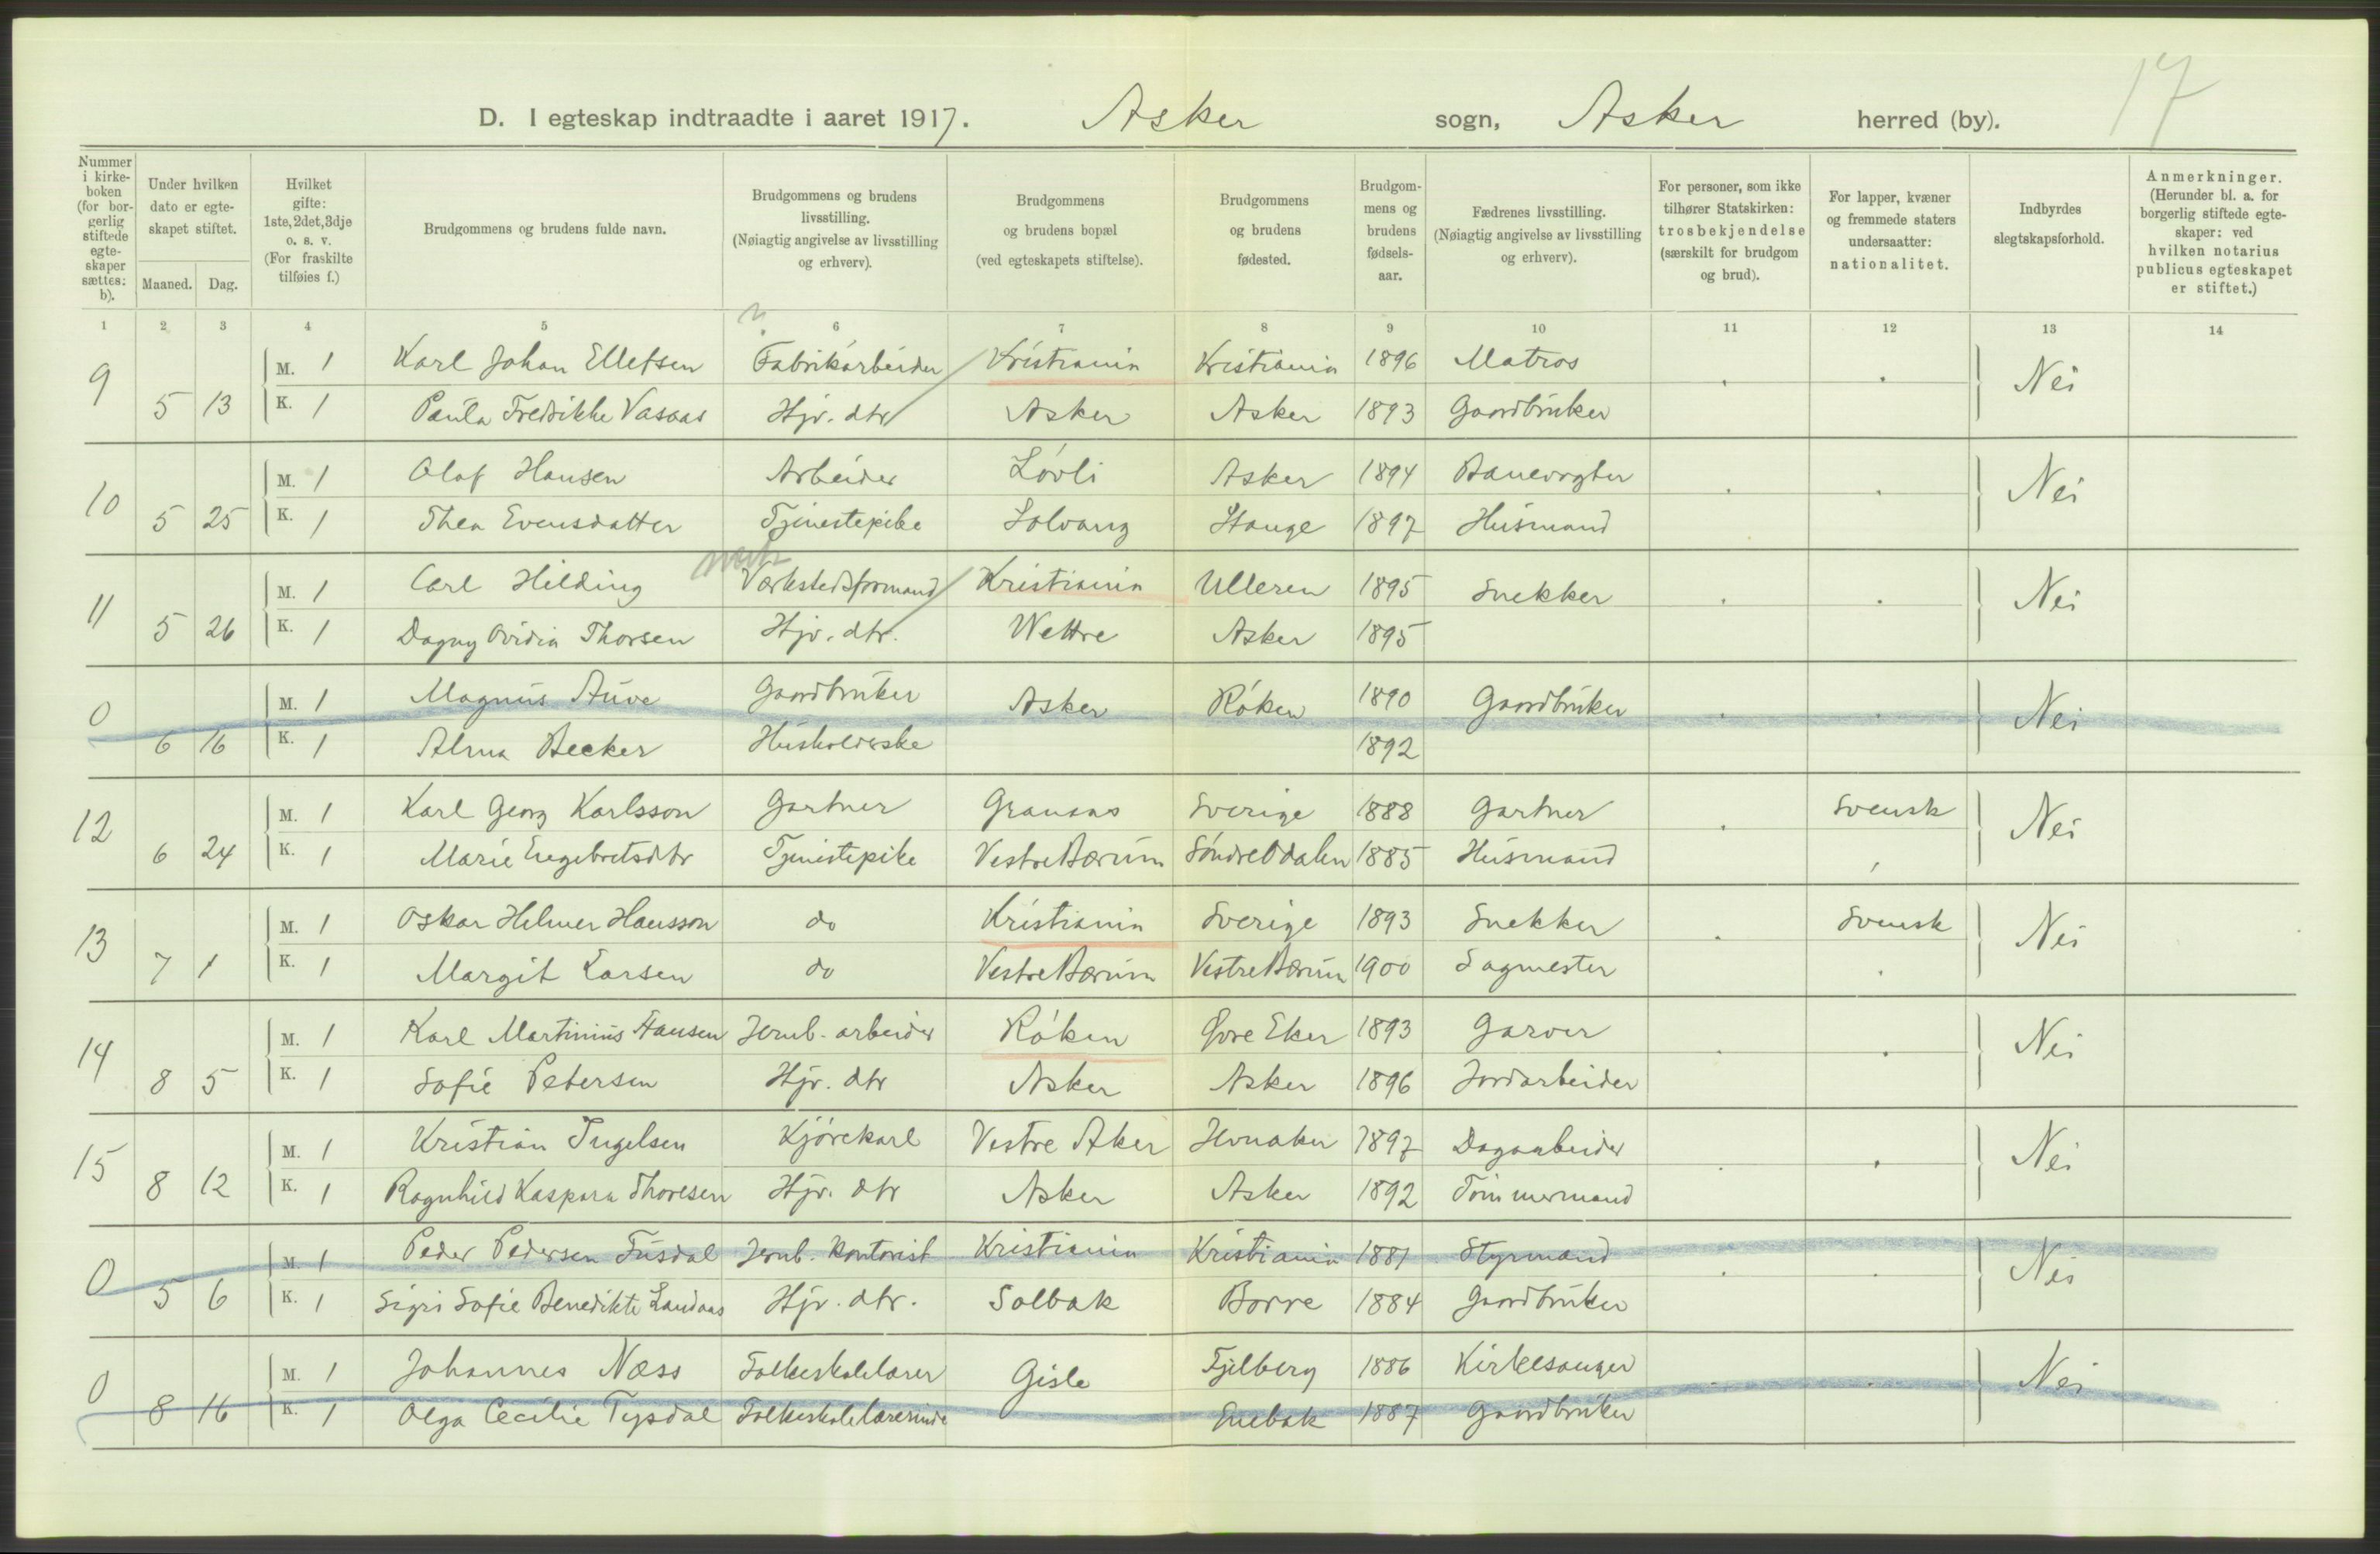 17
D. I egteskap indtraadte i aaret 1917. Asker sogn, Asker herred (by).
Nummer i kirke-boken (for bor-gerlig stiftede egte-skaper sættes: b).
Under hvilken dato er egte-skapet stiftet.
Maaned. Dag.
Hvilket gifte: 1ste, 2det, 3dje o. s. v. (For fraskilte tilføies f.)
Brudgommens og brudens fulde navn.
Brudgommens og brudens livsstilling. (Nøiagtig angivelse av livsstilling og erhverv).
Brudgommens og brudens bopæl (ved egteskapets stiftelse).
Brudgommens og brudens fødested.
Brudgom-mens og brudens fødsels-aar.
Fædrenes livsstilling. (Nøiagtig angivelse av livsstilling og erhverv).
For personer, som ikke tilhører Statskirken: trosbekjendelse (særskilt for brudgom og brud).
For lapper, kvæner og fremmede staters undersaatter: nationalitet.
Indbyrdes slegtskapsforhold.
Anmerkninger. (Herunder bl. a. for borgerlig stiftede egte-skaper: ved hvilken notarius publicus egteskapet er stiftet.)
1 2 3 4 5 6 7 8 9 10 11 12 13 14
9 M. 1 Karl Johan Ellefsen Fabrikarbeider Kristiania Kristiania 1896 Matros Nei
5 13 K. 1 Paula Fredrikke Vasaas Hjv. dtr Asker Asker 1893 Gaardbruker
10 M. 1 Olaf Hansen Arbeider Løvli Asker 1894 Banevogter Nei
5 25 K. 1 Thea Evensdatter Tjenestepike Solvang Stange 1897 Husmand
11 M. 1 Carl Hilding Værkstedsformand Kristiania Ulleren 1895 Snekker Nei
5 26 K. 1 Dagny Ovidia Thorsen Hjv. dtr. Wettre Asker 1895
0 M. 1 Magnus Auve Gaardbruker Asker Røken 1890 Gaardbruker Nei
6 16 K. 1 Alma Becker Husholderske 1892
12 M. 1 Karl Georg Karlsson Gartner Granaas Sverige 1888 Gartner Svensk Nei
6 24 K. 1 Marie Engebretsdtr Tjenistepike Vestre Bærum Søndre Odalen 1885 Husmand
13 M. 1 Oskar Helmer Hansson do Kristiania Sverige 1893 Snekker Svensk Nei
7 1 K. 1 Margit Larsen do Vestre Bærum Vestre Bærum 1900 Sagmester
14 M. 1 Karl Martinius Hansen Jernb. arbeider Røken Øvre Eker 1893 Garver Nei
8 5 K. 1 Sofie Petersen Hjv. dtr Asker Asker 1896 Jordarbeider
15 M. 1 Kristian Ingelsen Kjørekarl Vestre Aker 1897 Dagarbeider Nei
8 12 K. 1 Ragnhild Kaspara Thoresen Hjv. dtr Asker Asker 1892 Tømmermand
0 M. 1 Peder Pedersen Fusdal Jernb. kontorist Kristiania Kristiania 1881 Styrmand Nei
5 6 K. 1 Sigri Sofie Benedikte Landaas Hjv. dtr. Solbak Borre 1884 Gaardbruker
0 M. 1 Johannes Næss Folkeskolelærer Gisle Fjelberg 1886 Kirkesanger Nei
8 16 K. 1 Olga Cecilie Tysdal Folkeskolelærerinde Enebak 1887 Gaardbruker